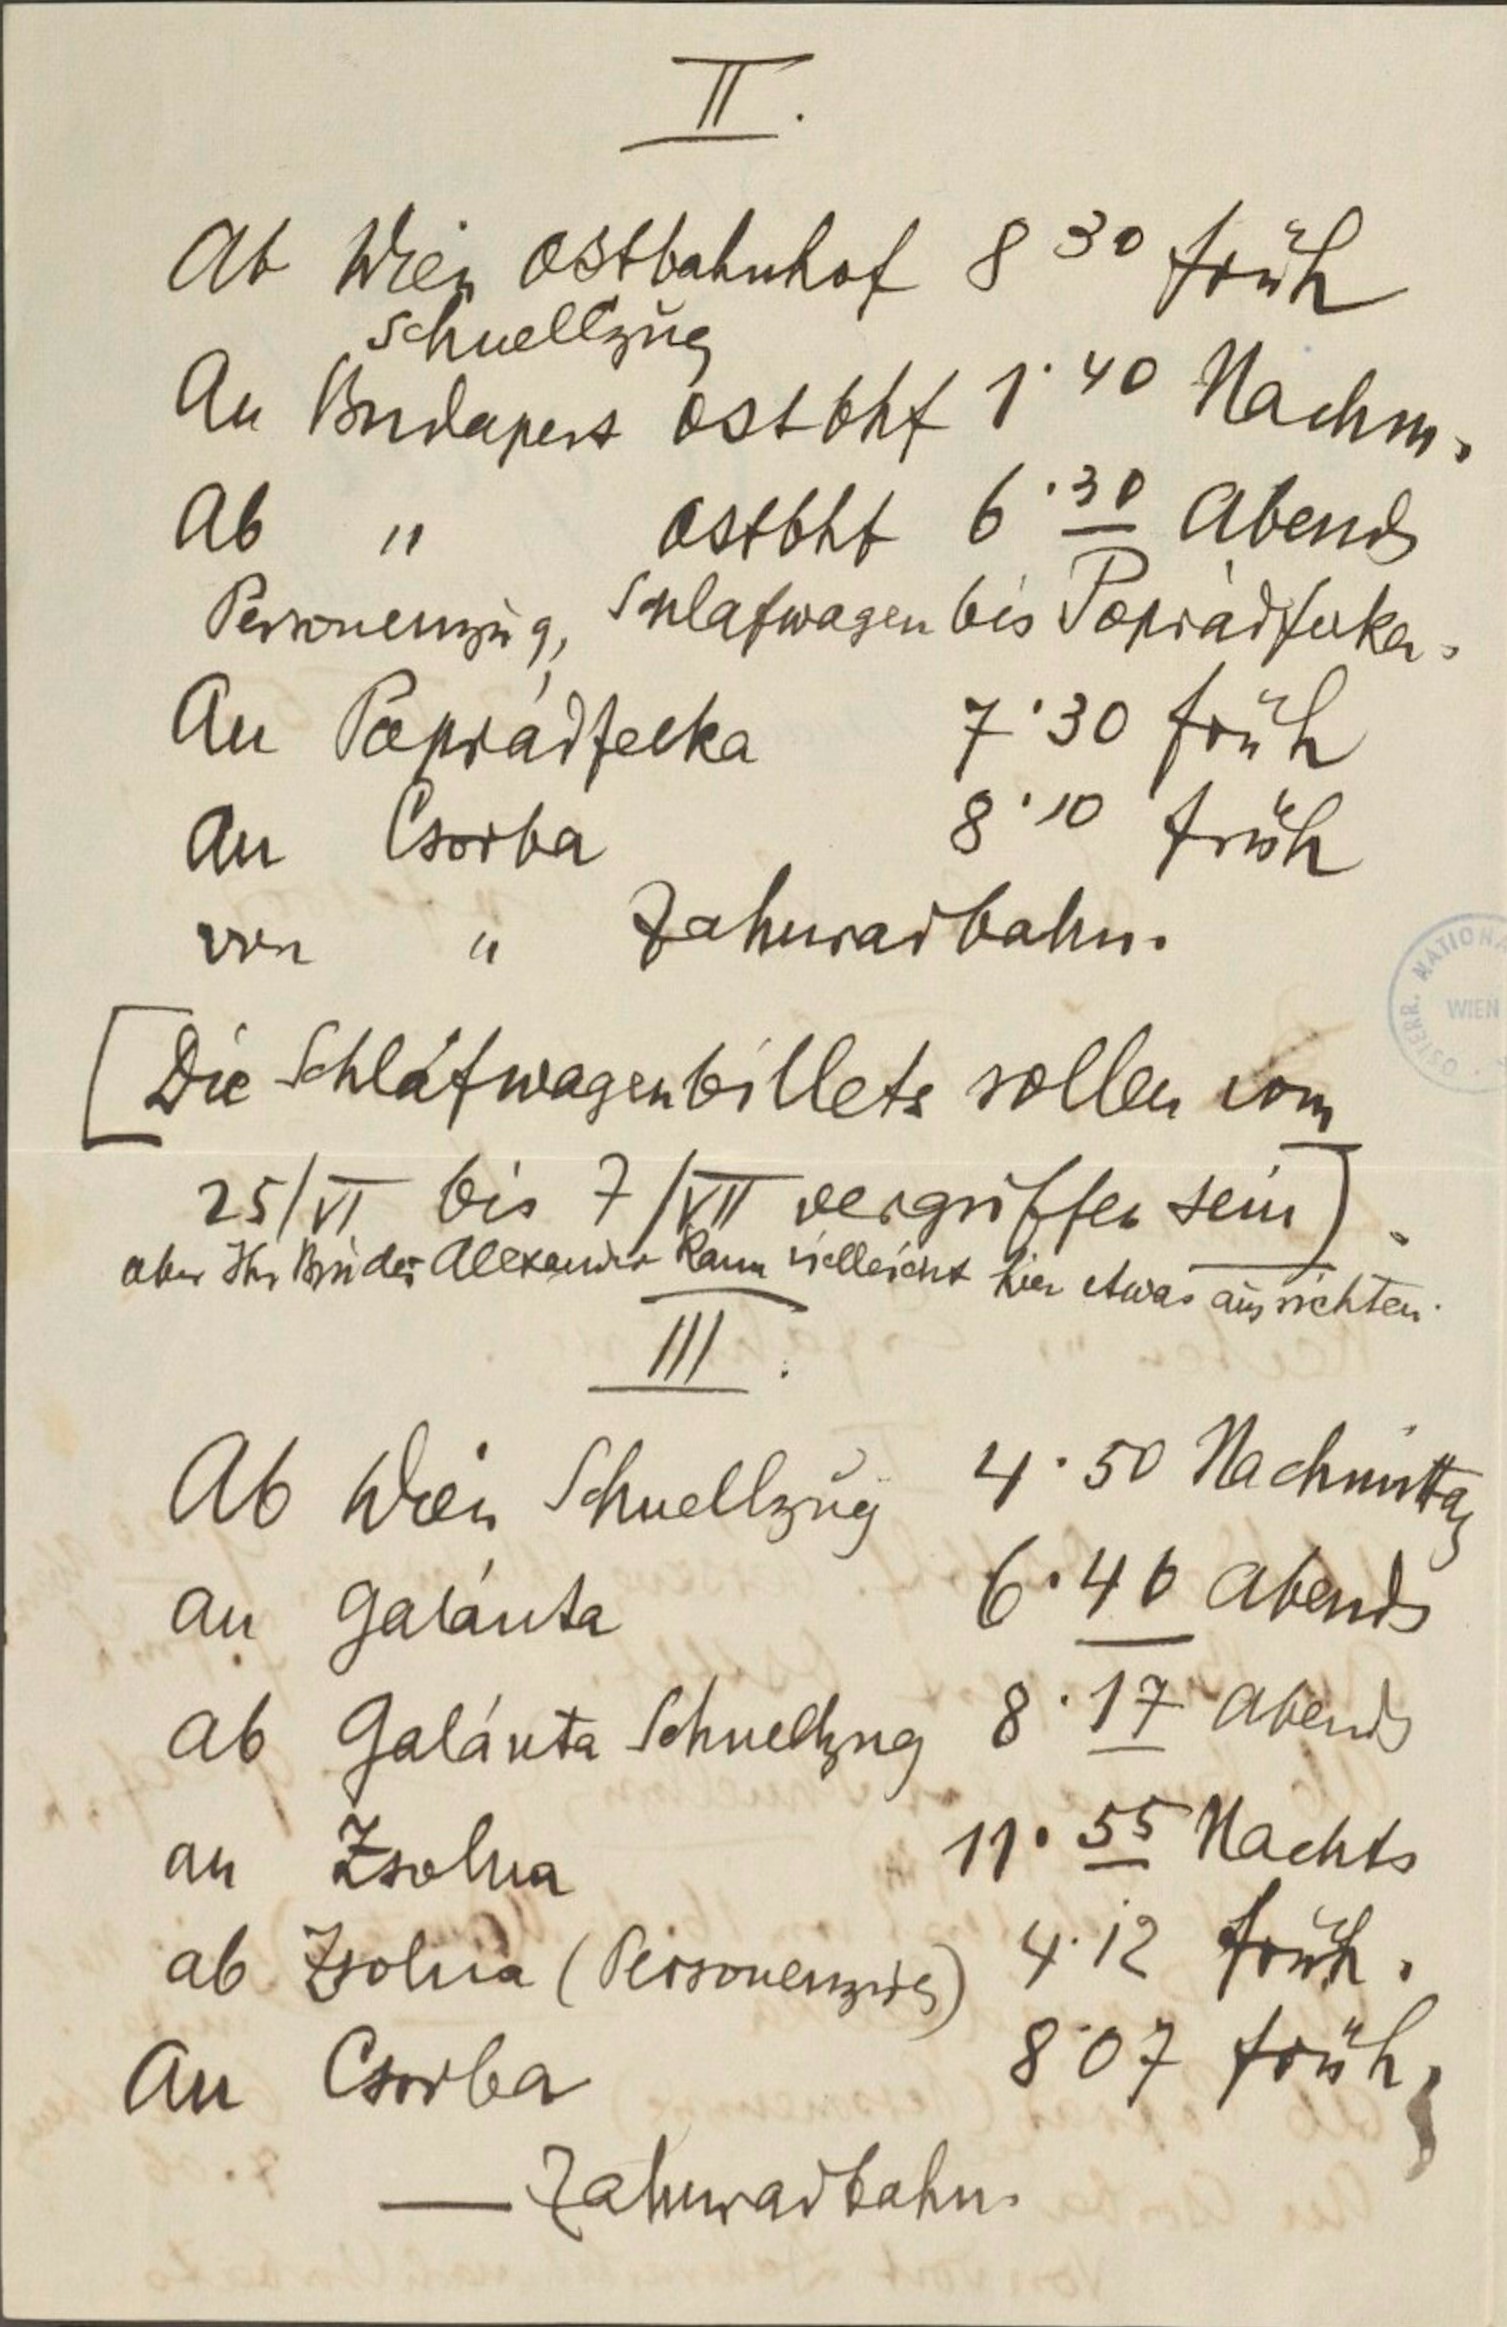 II.
Ab Wien Ostbahnhof 8 30 früh
Schnellzug
An Budapest Ostbhf 1·40 Nachm.
Ab " Ostbhf 6·30 Abends
Personenzug, Schlafwagen bis Poprádfelka.
An Poprádfelka 7·30 früh
An Csorba 8·10 früh
von " Zahnradbahn.
[Die Schlafwagenbillets sollen vom
25/VI bis 7/VII vergriffen sein].
aber Ihr Bruder Alexander kann vielleicht hier etwas ausrichten.
III.
Ab Wien Schnellzug 4·50 Nachmittag
an Galánta 6·46 Abends
ab Galánta Schnellzug 8·17 Abends
an Zsolna 11·55 Nachts
ab Zsolna (Personenzug) 4·12 früh.
An Csorba 8·07 früh,
— Zahnradbahn.
ÖSTERR. NATIONA
WIEN